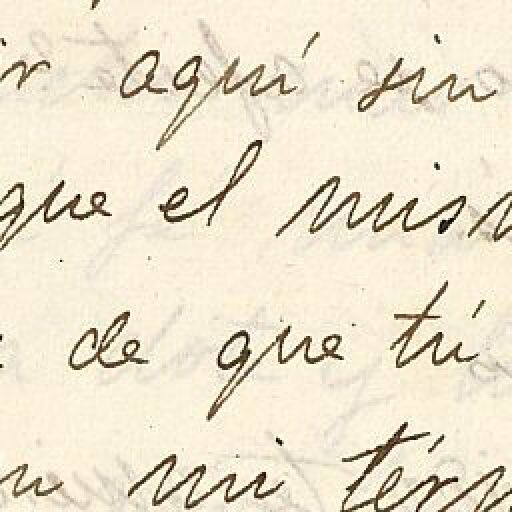 ir aquí sin
que el mism
de que tú
un mi térm